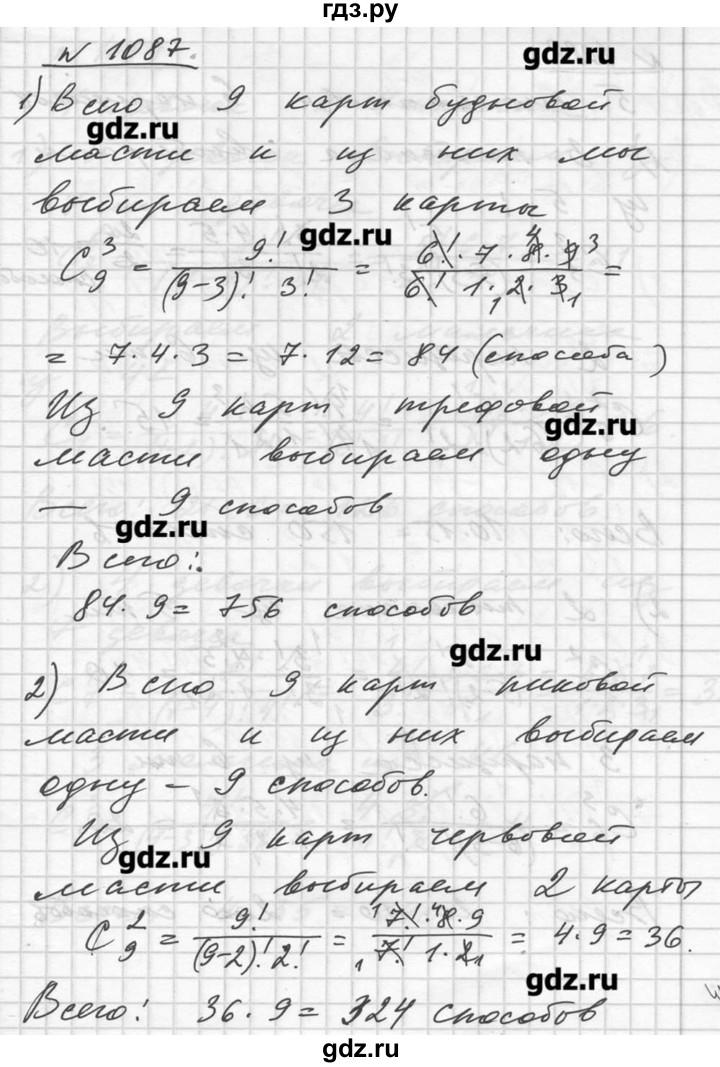 гдз.ру
N 1087.
gdz.ru
1) Всего 9 карт бубновой
gdz.ru
масти и из них мы
выбираем 3 карты
gdz.ru
C₉³ = 9! / (9-3)! 3! = 6! · 7 · 8 · 9 / 6! · 1 · 2 · 3 =
= 7 · 4 · 3 = 7 · 12 = 84 (способа)
Из 9 карт трефовой
gdz.ru
масти выбираем одну
— 9 способов
gdz.ru
Всего:
84 · 9 = 756 способов
gdz.ru
2) Всего 9 карт пиковой
масти и из них выбираем
одну – 9 способов.
Из 9 карт червовой
gdz.ru
масти выбираем 2 карты
C₉² = 9! / (9-2)! 2! = 7! · 8 · 9 / 7! · 1 · 2 = 4 · 9 = 36.
gdz.ru
Всего: 36 · 9 = 324 способов
gdz.ru